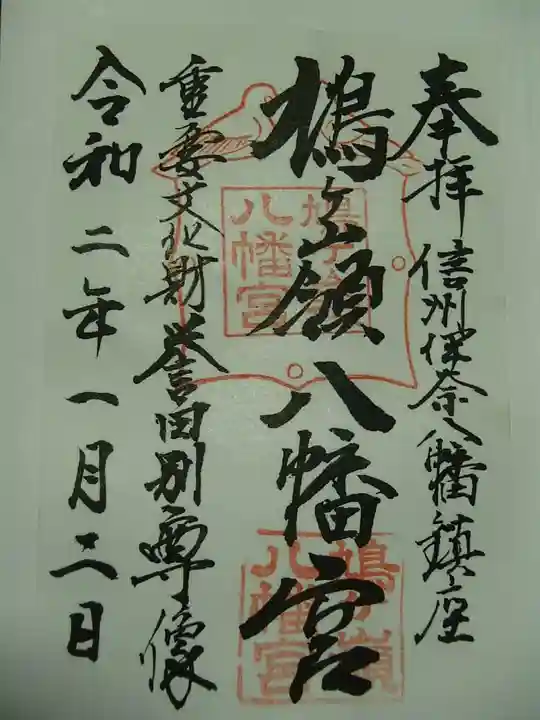 奉拝 信州伊奈八幡鎮座
鳩ヶ嶺八幡宮
重要文化財誉田別尊像
令和二年一月二日
鳩ヶ嶺
八幡宮
鳩ヶ嶺
八幡宮